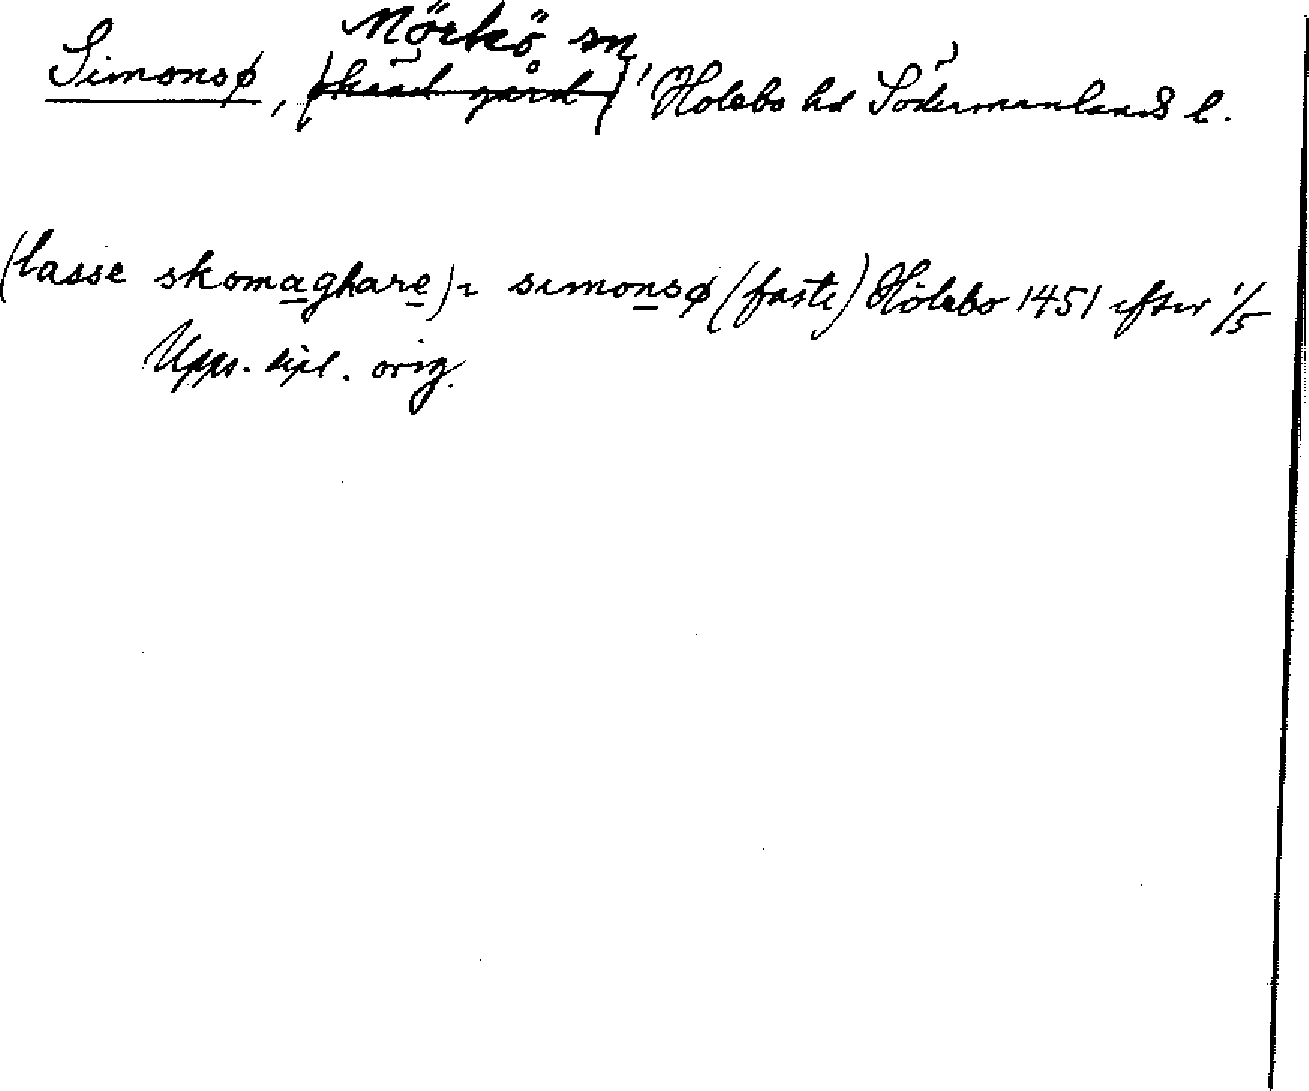 Mörkö sn
Simonsø, (okänd gård), Hölebo hd Södermanlands l.
(lasse skomaghare) i simonsø (faste) Hölebo 1451 efter 1/5
Upps. dipl. orig.